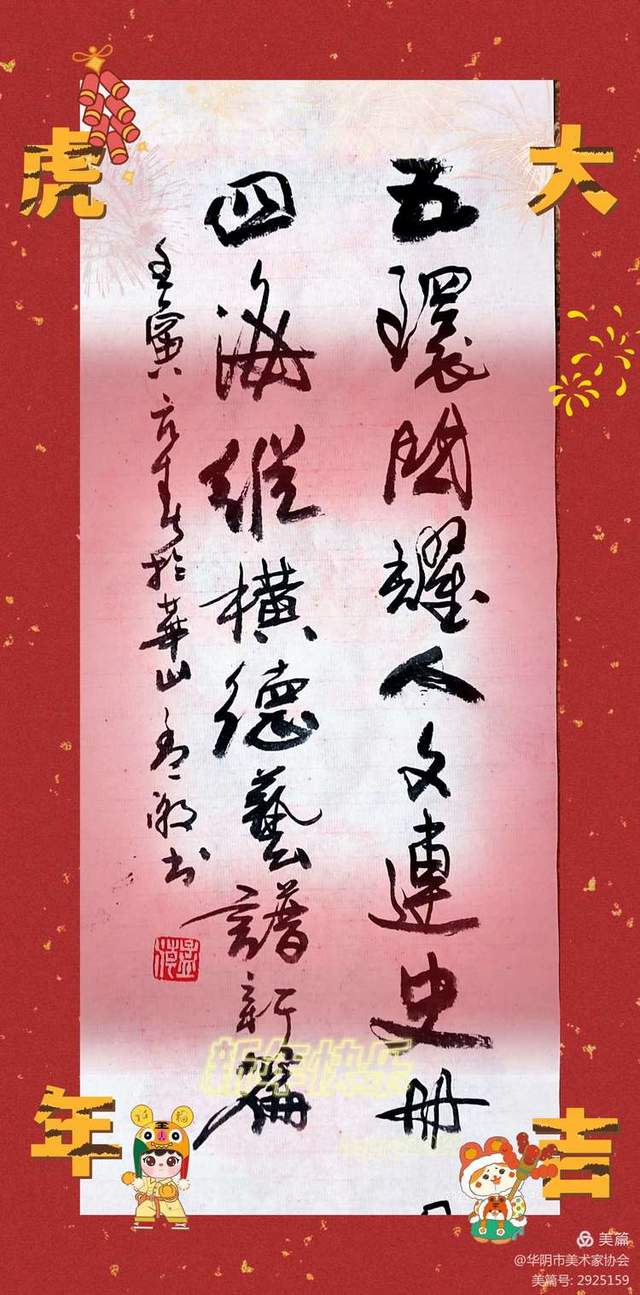 大吉
虎年
五環閃耀人文連史册
四海縱橫德藝譜新篇
壬寅 於華山 書
新年快乐
美篇
@华阴市美术家协会
美篇号: 2925159